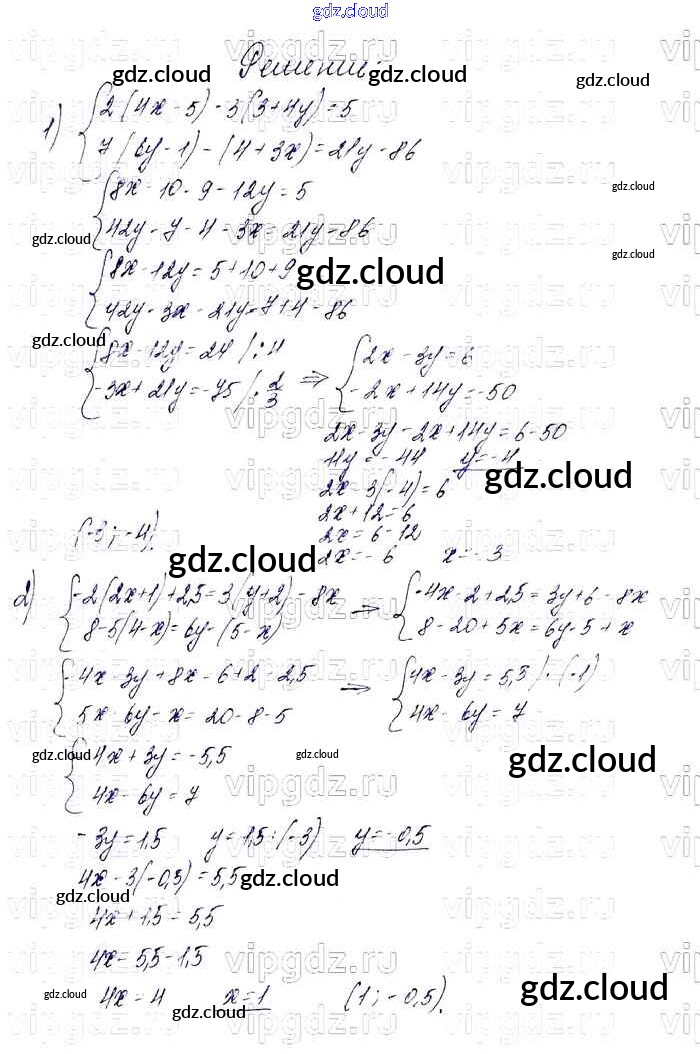 gdz.cloud
Решение:
1) { 2(4x - 5) - 3(3 + 4y) = 5
7(6y - 1) - (4 + 3x) = 21y - 86
{ 8x - 10 - 9 - 12y = 5
42y - 7 - 4 - 3x = 21y - 86
{ 8x - 12y = 5 + 10 + 9
42y - 3x - 21y = 7 + 4 - 86
{ 8x - 12y = 24 / : 4
-3x + 21y = -75 / : 2/3
⇒ { 2x - 3y = 6
-2x + 14y = -50
2x - 3y - 2x + 14y = 6 - 50
11y = -44 y = -4
2x - 3(-4) = 6
2x + 12 = 6
2x = 6 - 12
2x = -6 x = -3
(-3; -4).
2) { -2(2x+1) + 2,5 = 3(y+2) - 8x
8 - 5(4 - x) = 6y - (5 - x)
⇒ { -4x - 2 + 2,5 = 3y + 6 - 8x
8 - 20 + 5x = 6y - 5 + x
{ -4x - 3y + 8x = 6 + 2 - 2,5
5x - 6y - x = 20 - 8 - 5
⇒ { 4x - 3y = 5,5 / · (-1)
4x - 6y = 7
{ -4x + 3y = -5,5
4x - 6y = 7
-3y = 1,5 y = 1,5 : (-3) y = -0,5
4x - 3(-0,5) = 5,5
4x + 1,5 = 5,5
4x = 5,5 - 1,5
4x = 4 x = 1 (1; -0,5).